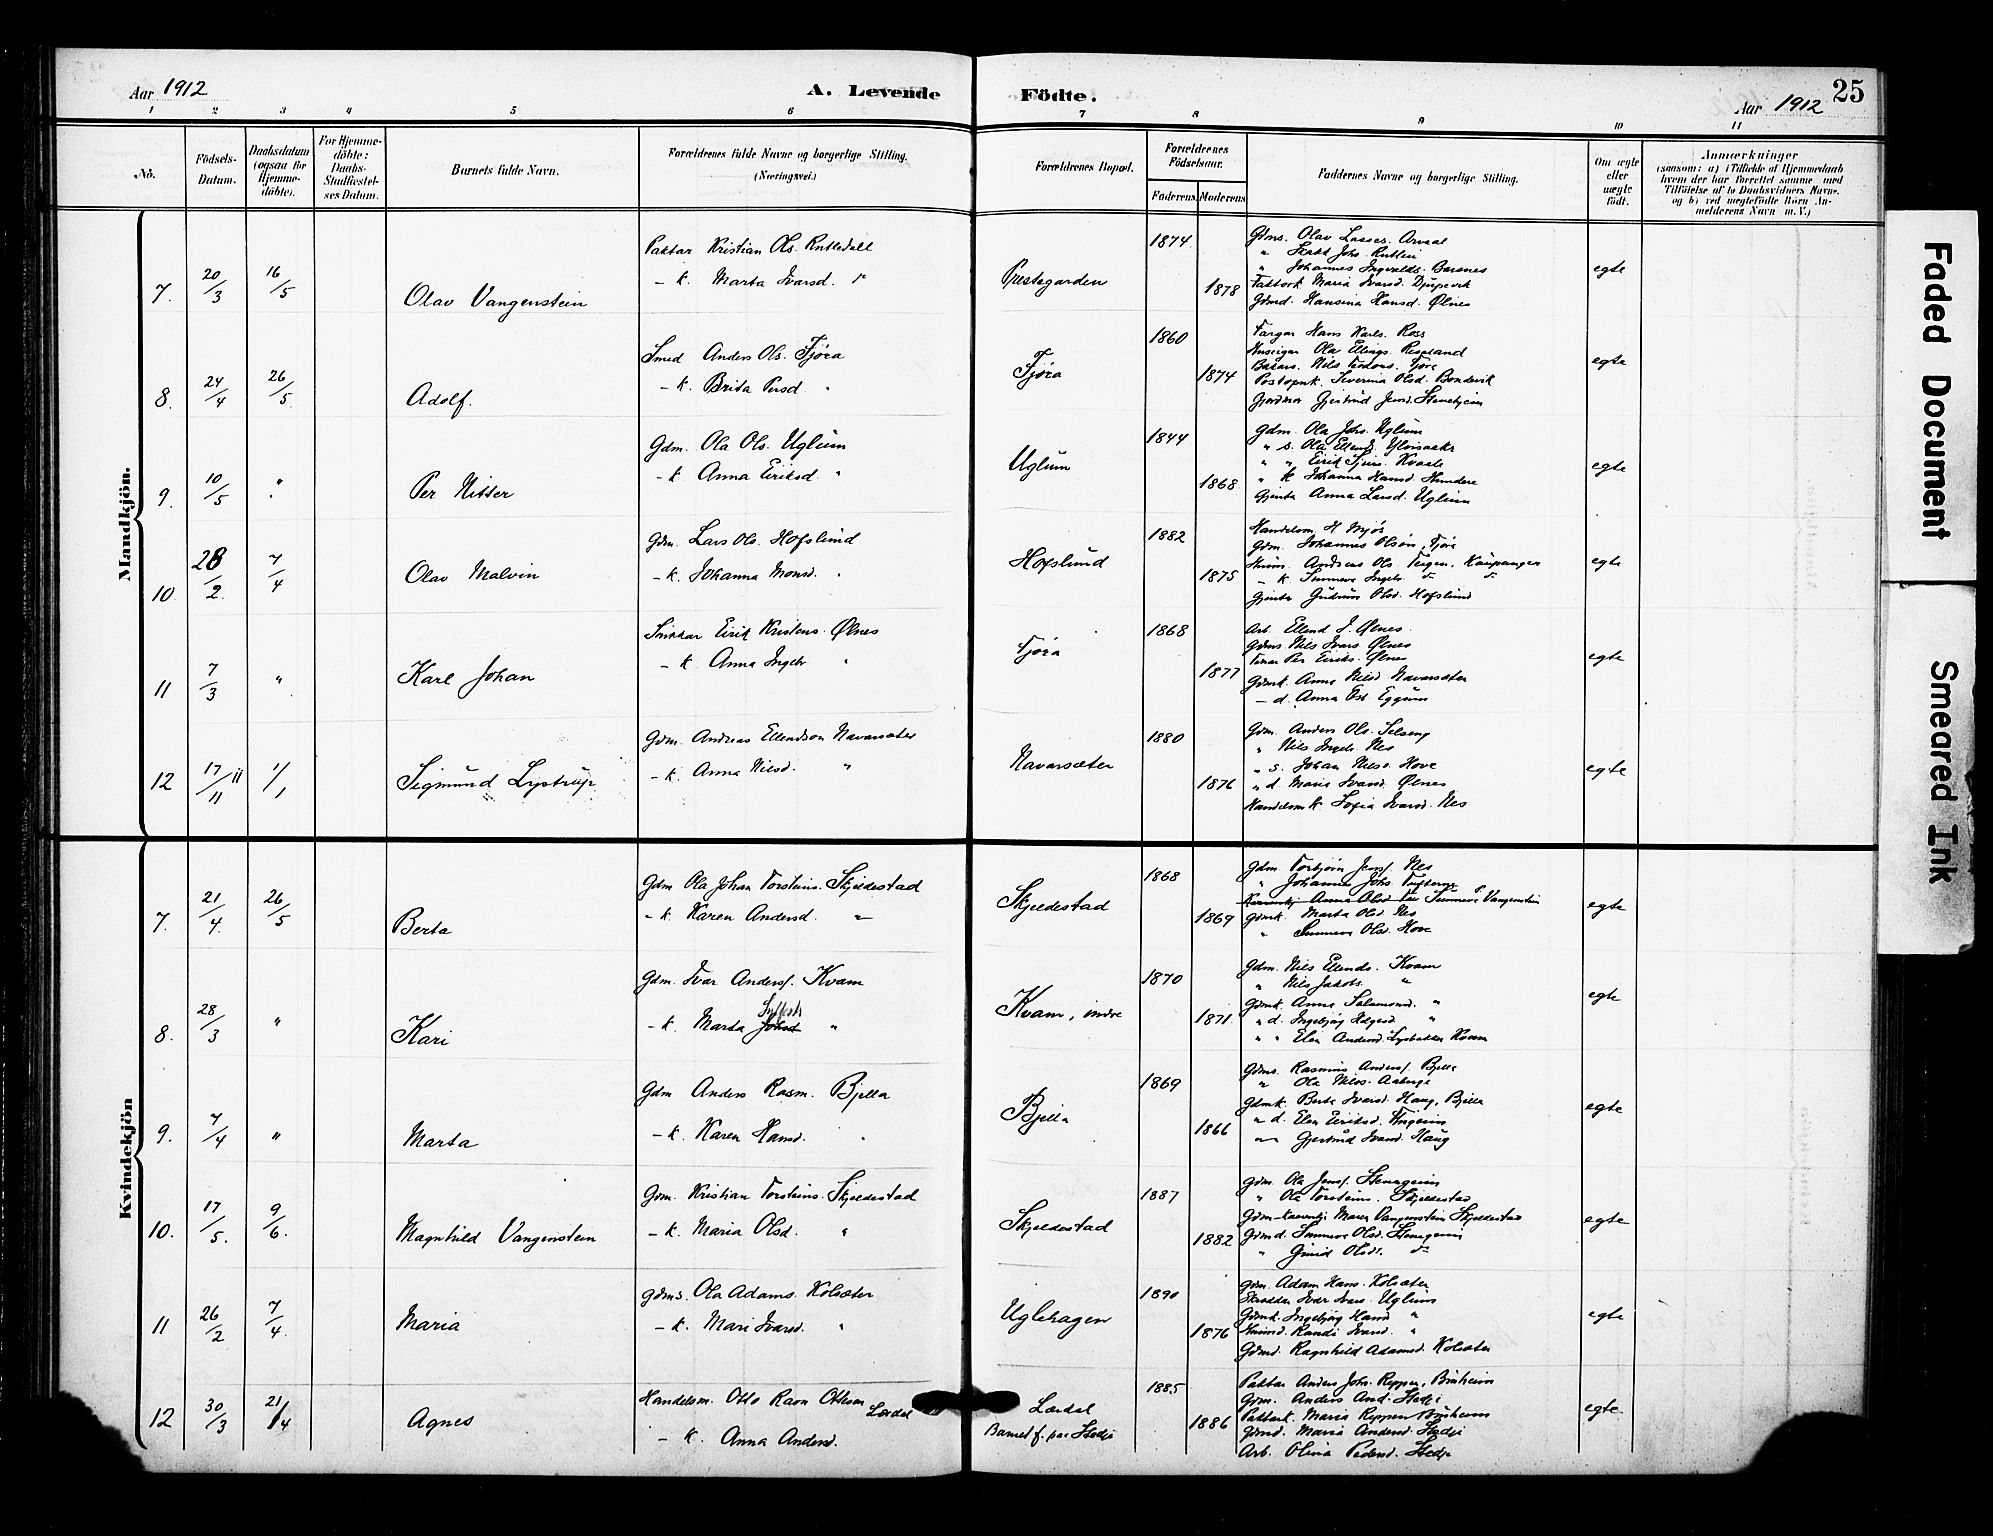 Aar 1912
A. Levende
Födte.
Aar 1912
25
1 2 3 4 5 6 7 8 9 10 11
No.
Födsels-Datum.
Daabsdatum (ogsaa for Hjemmedöbte).
For Hjemmedöbte: Daabs-Stadfæstelses Datum.
Barnets fulde Navn.
Forældrenes fulde Navne og borgerlige Stilling. (Næringsvei.)
Forældrenes Bopæl.
Forældrenes Födselsaar.
Faderens. Moderens.
Faddernes Navne og borgerlige Stilling.
Om ægte eller uægte födt.
Anmærkninger (saasom: a) i Tilfælde af Hjemmedaab hvem der har forrettet samme med Tilföielse af to Daabsvidners Navne. og b) ved uægtefödte Börn Anmelderens Navn m. V.)
Mandkjön.
7. 20/3 16/5 Olav Vangenstein
Paktar Kristian Ols. Rutledall
- k. Marta Ivarsd.
Prestegarden
1874
1878
Gdms. Olav Lasses. Arvaal
" Johannes Ingvalds. Barsnes
Faktork Maria Ivarsd. Djupevik
Gdmd. Hansina Hansd. Ølnes
egte
8. 24/4 26/5. Adolf.
Smed Anders Ols. Fjøra
- k. Brita Persd. "
Fjøra
1860
1874
Fargar Hans Karls. Ross
Huseigar Ola Ellings. Roseland
Postopnk. Severina Olsd. Bondevik
Gjordmor Gjertrud Jensd. Stenehjem
egte
9. 10/5 " Per Nitter
Gdm. Ola Ols. Uglum
- k Anna Eiriksd. "
Uglum
1844
1868
Gdm. Ola Johs. Uglum
" s. Ola Ellends. Ylvisaaker
" " Eirik Sjurs. Kvaale
" k Johanna Hansd. Hundere
Gjenta Anna Larsd. Uglum
egte
10. 28/2. 7/4 Olav Malvin
Gdm. Lars Ols. Hofslund
- k. Johanna Monsd. "
Hofslund
1882
1875
Handelsm H. Mjøs
Gdm. Johannes Olsøn, Fjøre
Husm. Andreas Ols. Teigen, Kaupanger
- k Sunneva Ingebr. do do
Gjenta Gudrun Olsd. Hofslund
egte
11 7/3 " Karl Johan
Snikkar Eirik Kristens. Ølnes
- k. Anna Ingebr "
Fjøra
1868
1877
Arb. Ellend J. Ølnes.
Gdms Nils Ivars Ølnes
Per Eiriks. Ølnes
Gdmk. Anna Nilsd Navarsæter
- d. Anna Eggum
egte
12 17/11 11 1/1 Sigmund Lystrup
Gdm. Andreas Ellendson Navarsæter
- k. Anna Nilsd. "
Navarsæter
1880
1876
Gdm. Anders Ols. Selseng
" Nils Ingebr. Nes
" s. Johan Nilss. Hove
" d. Maria Ivarsd. Ølnes
Handelsm k. Sofia Ivarsd. Nes
egte
Kvindekjön
7. 21/4. 26/5 Berta
Gdm Ola Johan Torsteins. Skjeldestad
- k. Karen Andersd. "
Skjeldestad
1868
1869
Gdm Torbjørn Jensf. Nes
" Johannes Johs.
Anna Olsd Sunneva P. Vangenstein
Gdmk. Marta Olsd Nes
" Sunneva Olsd. Hove
egte
8. 28/3 " Kari
Gdm. Ivar Andersf. Kvam
- k. Marta Johsd "
Kvam, indre
1870
1871
Gdm. Nils Ellends. Kvam
" Nils Jakobs. "
Gdmk. Anna Salamonsd. "
" d. Ingebjørg Helgesd. "
" " Elen Andersd. Lysbakken Kvam
egte
9. 7/4 " Marta
Gdm Anders Rasm. Bjella
- k. Karen Hansd. "
Bjella
1869
1866
Gdms. Rasmus Andersf. Bjella
" Ola Nilss. Aaberge
Gdmk. Berta Ivarsd. Haug, Bjella
" d. Elen Eiriksd.
" Gjertrud Ivarsd. Haug
egte
10. 17/5. 9/6. Magnhild Vangenstein
Gdm. Kristian Torsteins. Skjeldestad
- k. Maria Olsd. "
Skjeldestad
1887
1882
Gdm. Ola Jensf. Stenegeim
" Ola Torsteins. Skjeldestad
Gdm-kaarenkj. Maren Vangenstein Skjeldestad
Gdmd. Sunneva Olsd. Stenegeim
" Gurid Olsd. do
egte
11 26/2 7/4. Maria
Gdms. Ola Adams. Kolsæter
- k. Mari Ivarsd. "
Uglehagen
1890
1876
Gdm. Adam Hans. Kolsæter
Skreddar Ivar Ivars. Uglum
Gdmk. Ingebjørg Hansd "
Husmd. Randi Ivarsd. "
Gdmd. Ragnhild Adamsd. Kolsæter
egte
12 30/3 21/4 Agnes
Handelsm. Otto Ravn Ottesen Lærdal
- k. Anna Andersd.
Lærdal
Barnet f. paa Stedje
1885
1886
Paktar Anders Johs. Reppen, Bruheim
Gdm. Anders And. Stedje
Paktark. Maria Reppen Bruheim
Gdmd. Maria Andersd. Stedje
Arb. Olina Pedersd. Stedje
egte.
Faded Document
Smeared Ink